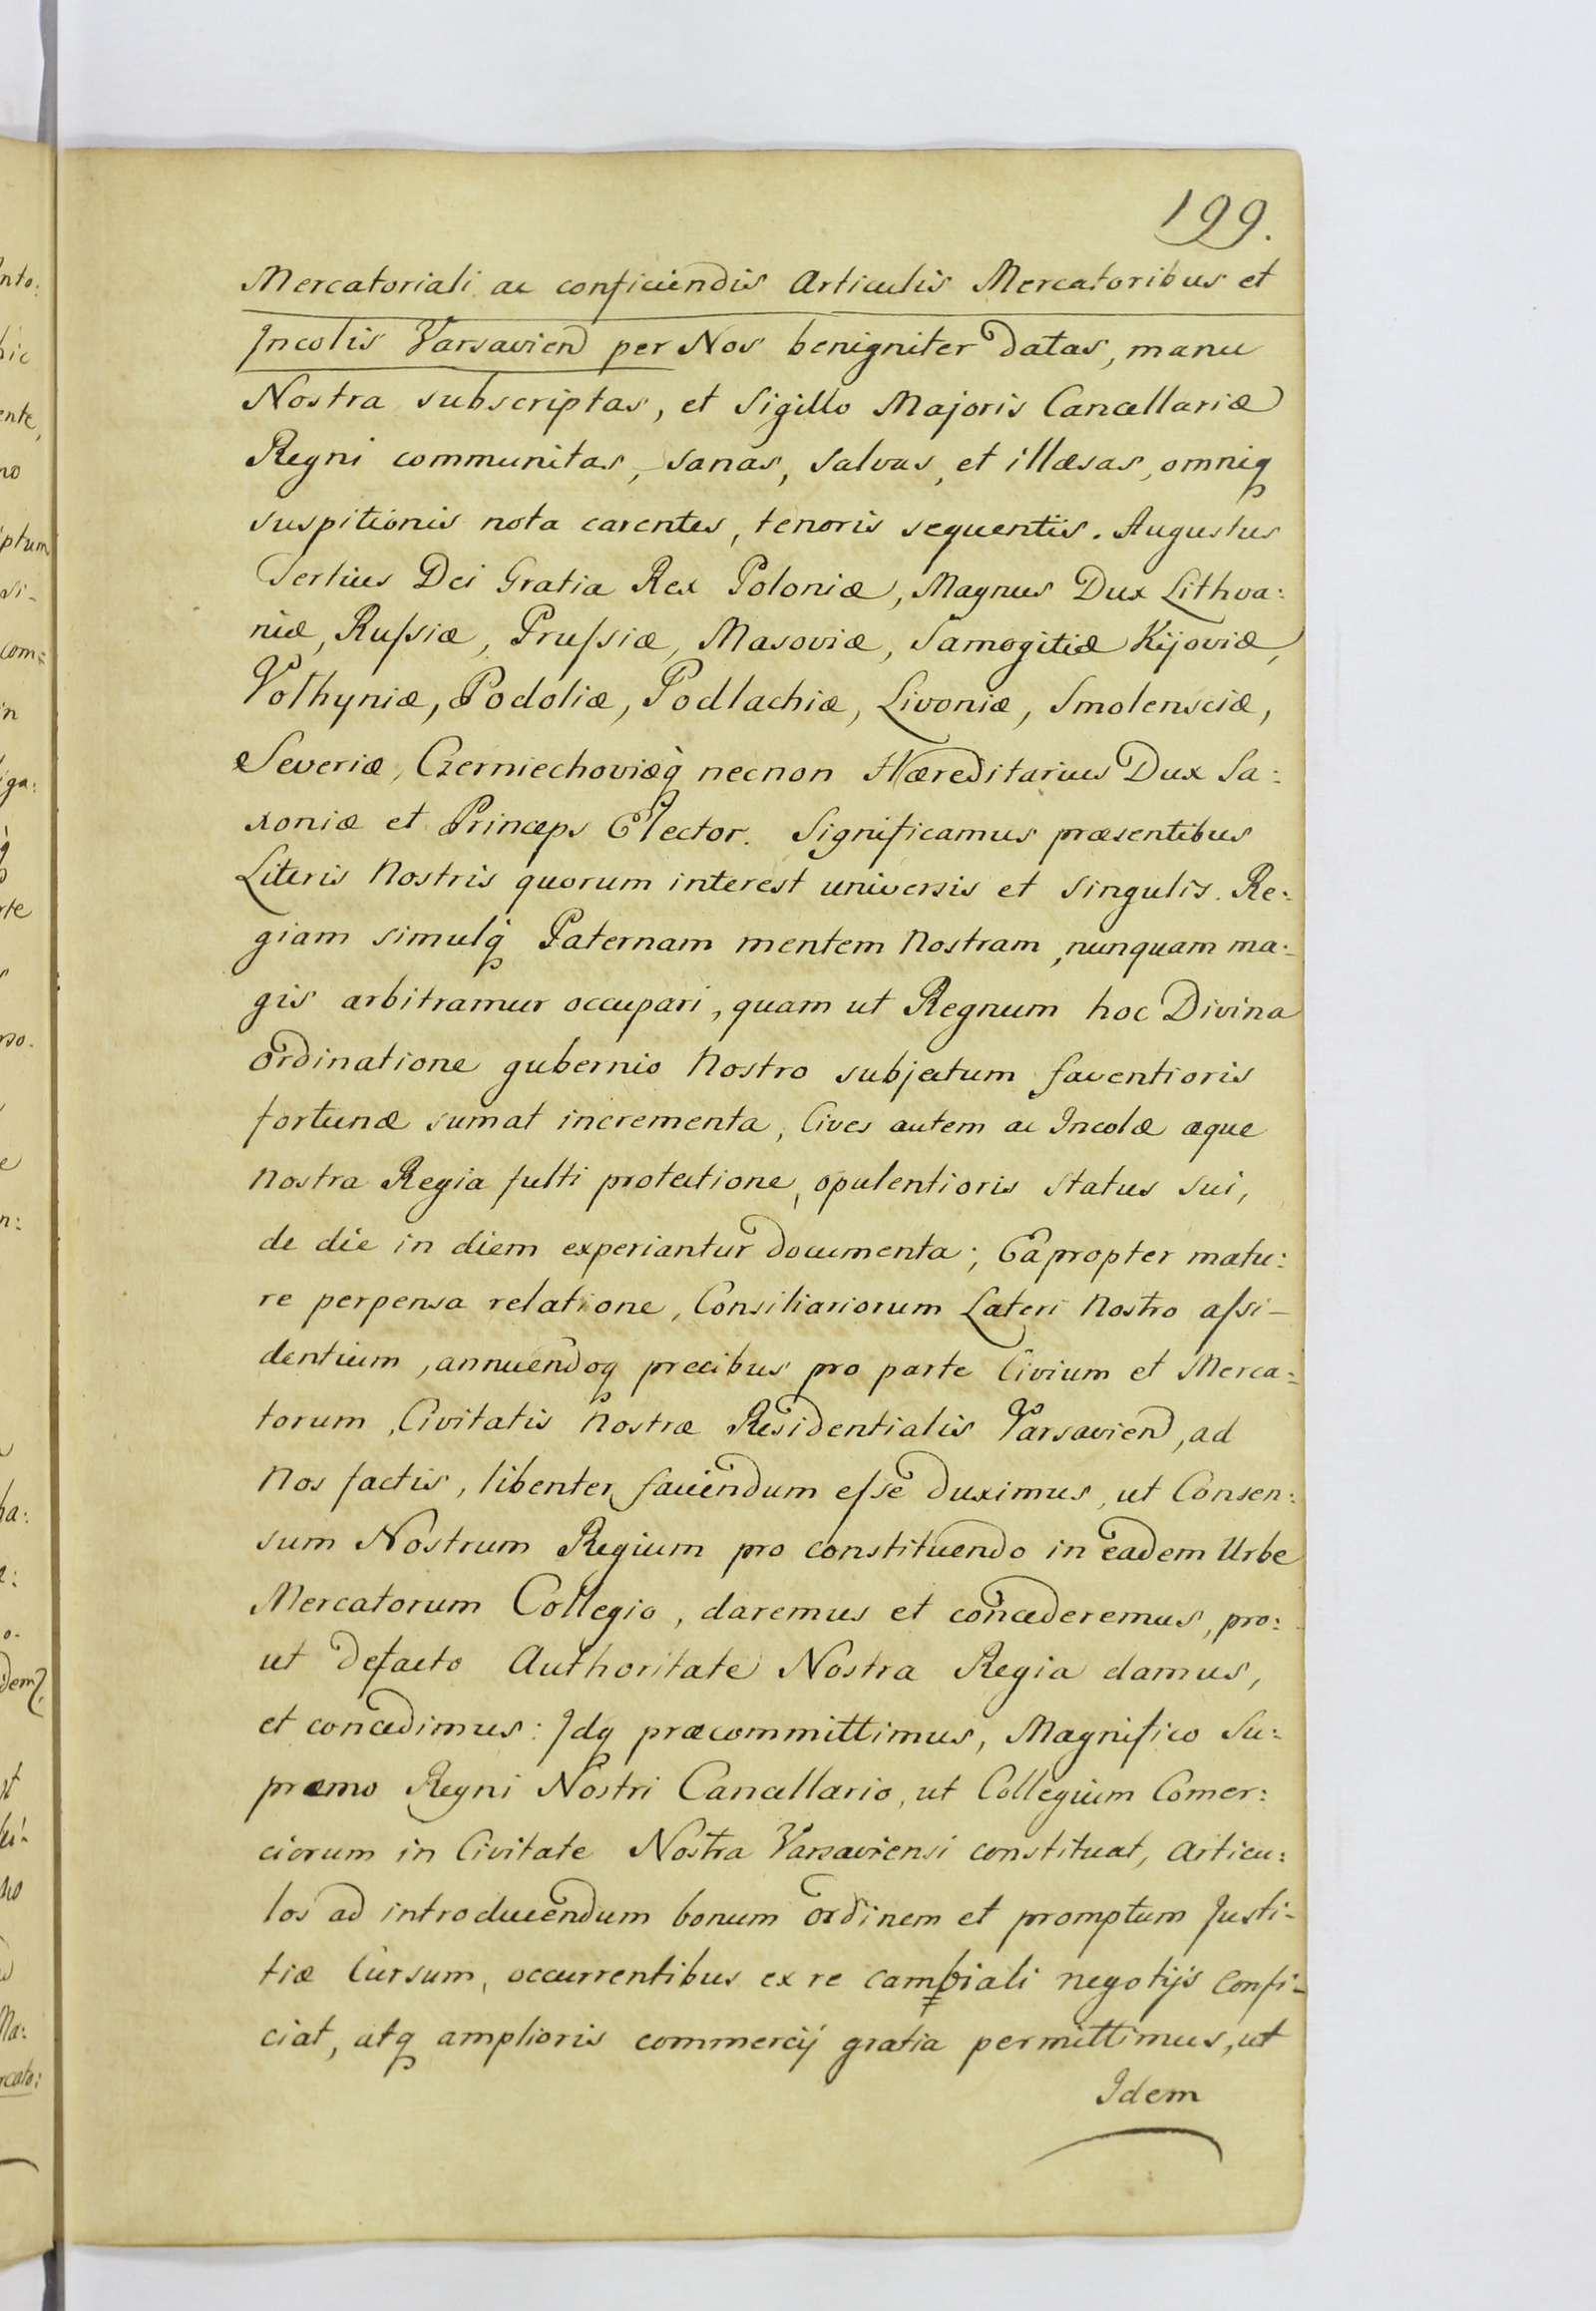 199.
Mercatoriali ac conficiendis Articulis Mercatoribus et
Incolis Varsavien per Nos benigniter datas, manu
Nostra subscriptas, et Sigillo Majoris Cancellariæ
Regni communitas, sanas, salvas, et illæsas, omniq
suspitionis nota carentes, tenoris sequentis. Augustus
Tertius Dei Gratia Rex Poloniæ, Magnus Dux Lithva:
niæ, Ruſsiæ, Pruſsiæ, Masoviæ, Samogitiæ Kijoviæ,
Volhyniæ, Podoliæ, Podlachiæ, Livoniæ, Smolensciæ,
Severiæ, Czerniechoviæq necnon Hæreditarius Dux Sa:
xoniæ et Princeps Elector. Significamus præsentibus
Literis Nostris quorum interest universis et singulis. Re:
giam simulq Paternam mentem Nostram, nunquam ma:
gis arbitramur occupari, quam ut Regnum hoc Divina
ordinatione gubernio Nostro subjectum faventioris
fortunæ sumat incrementa, Cives autem ac Incolæ æque
Nostra Regia fulti protectione, opulentioris Status sui,
de die in diem experiantur documenta; Eapropter matu:
re perpensa relatione, Consiliariorum Lateri Nostro aſsi-
dentium, annuendoq precibus pro parte Civium et Merca:
torum, Civitatis Nostræ Residentialis Varsavien, ad
Nos factis, libenter faciendum eſse duximus, ut Consen:
sum Nostrum Regium pro constituendo in eadem Urbe
Mercatorum Collegio, daremus et concederemus, pro:
ut defacto Authoritate Nostra Regia damus,
et concedimus: Idq præcommittimus, Magnifico Su:
premo Regni Nostri Cancellario, ut Collegium Comer:
ciorum in Civitate Nostra Varsaviensi constituat, Articu:
los ad introducendum bonum ordinem et promptum Justi-
tiæ Cursum, occurrentibus ex re cambiali negotijs confi-
ciat, atq amplioris commercij gratia permittimus, ut
Idem